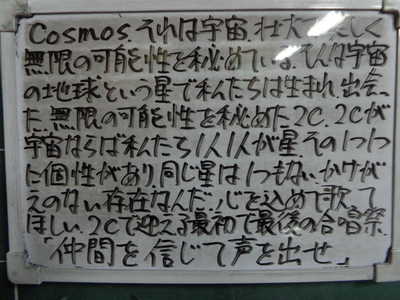 Cosmos.それは宇宙.壮大で美しく
無限の可能性を秘めている.そんな宇宙
の地球という星で私たちは生まれ,出会っ
た.無限の可能性を秘めた2C.2Cが
宇宙ならば私たち1人1人が星.その1つ1つ
に個性があり,同じ星は1つもない.かけが
えのない存在なんだ.心を込めて歌って
ほしい.2Cで迎える最初で最後の合唱祭.
「仲間を信じて声を出せ」